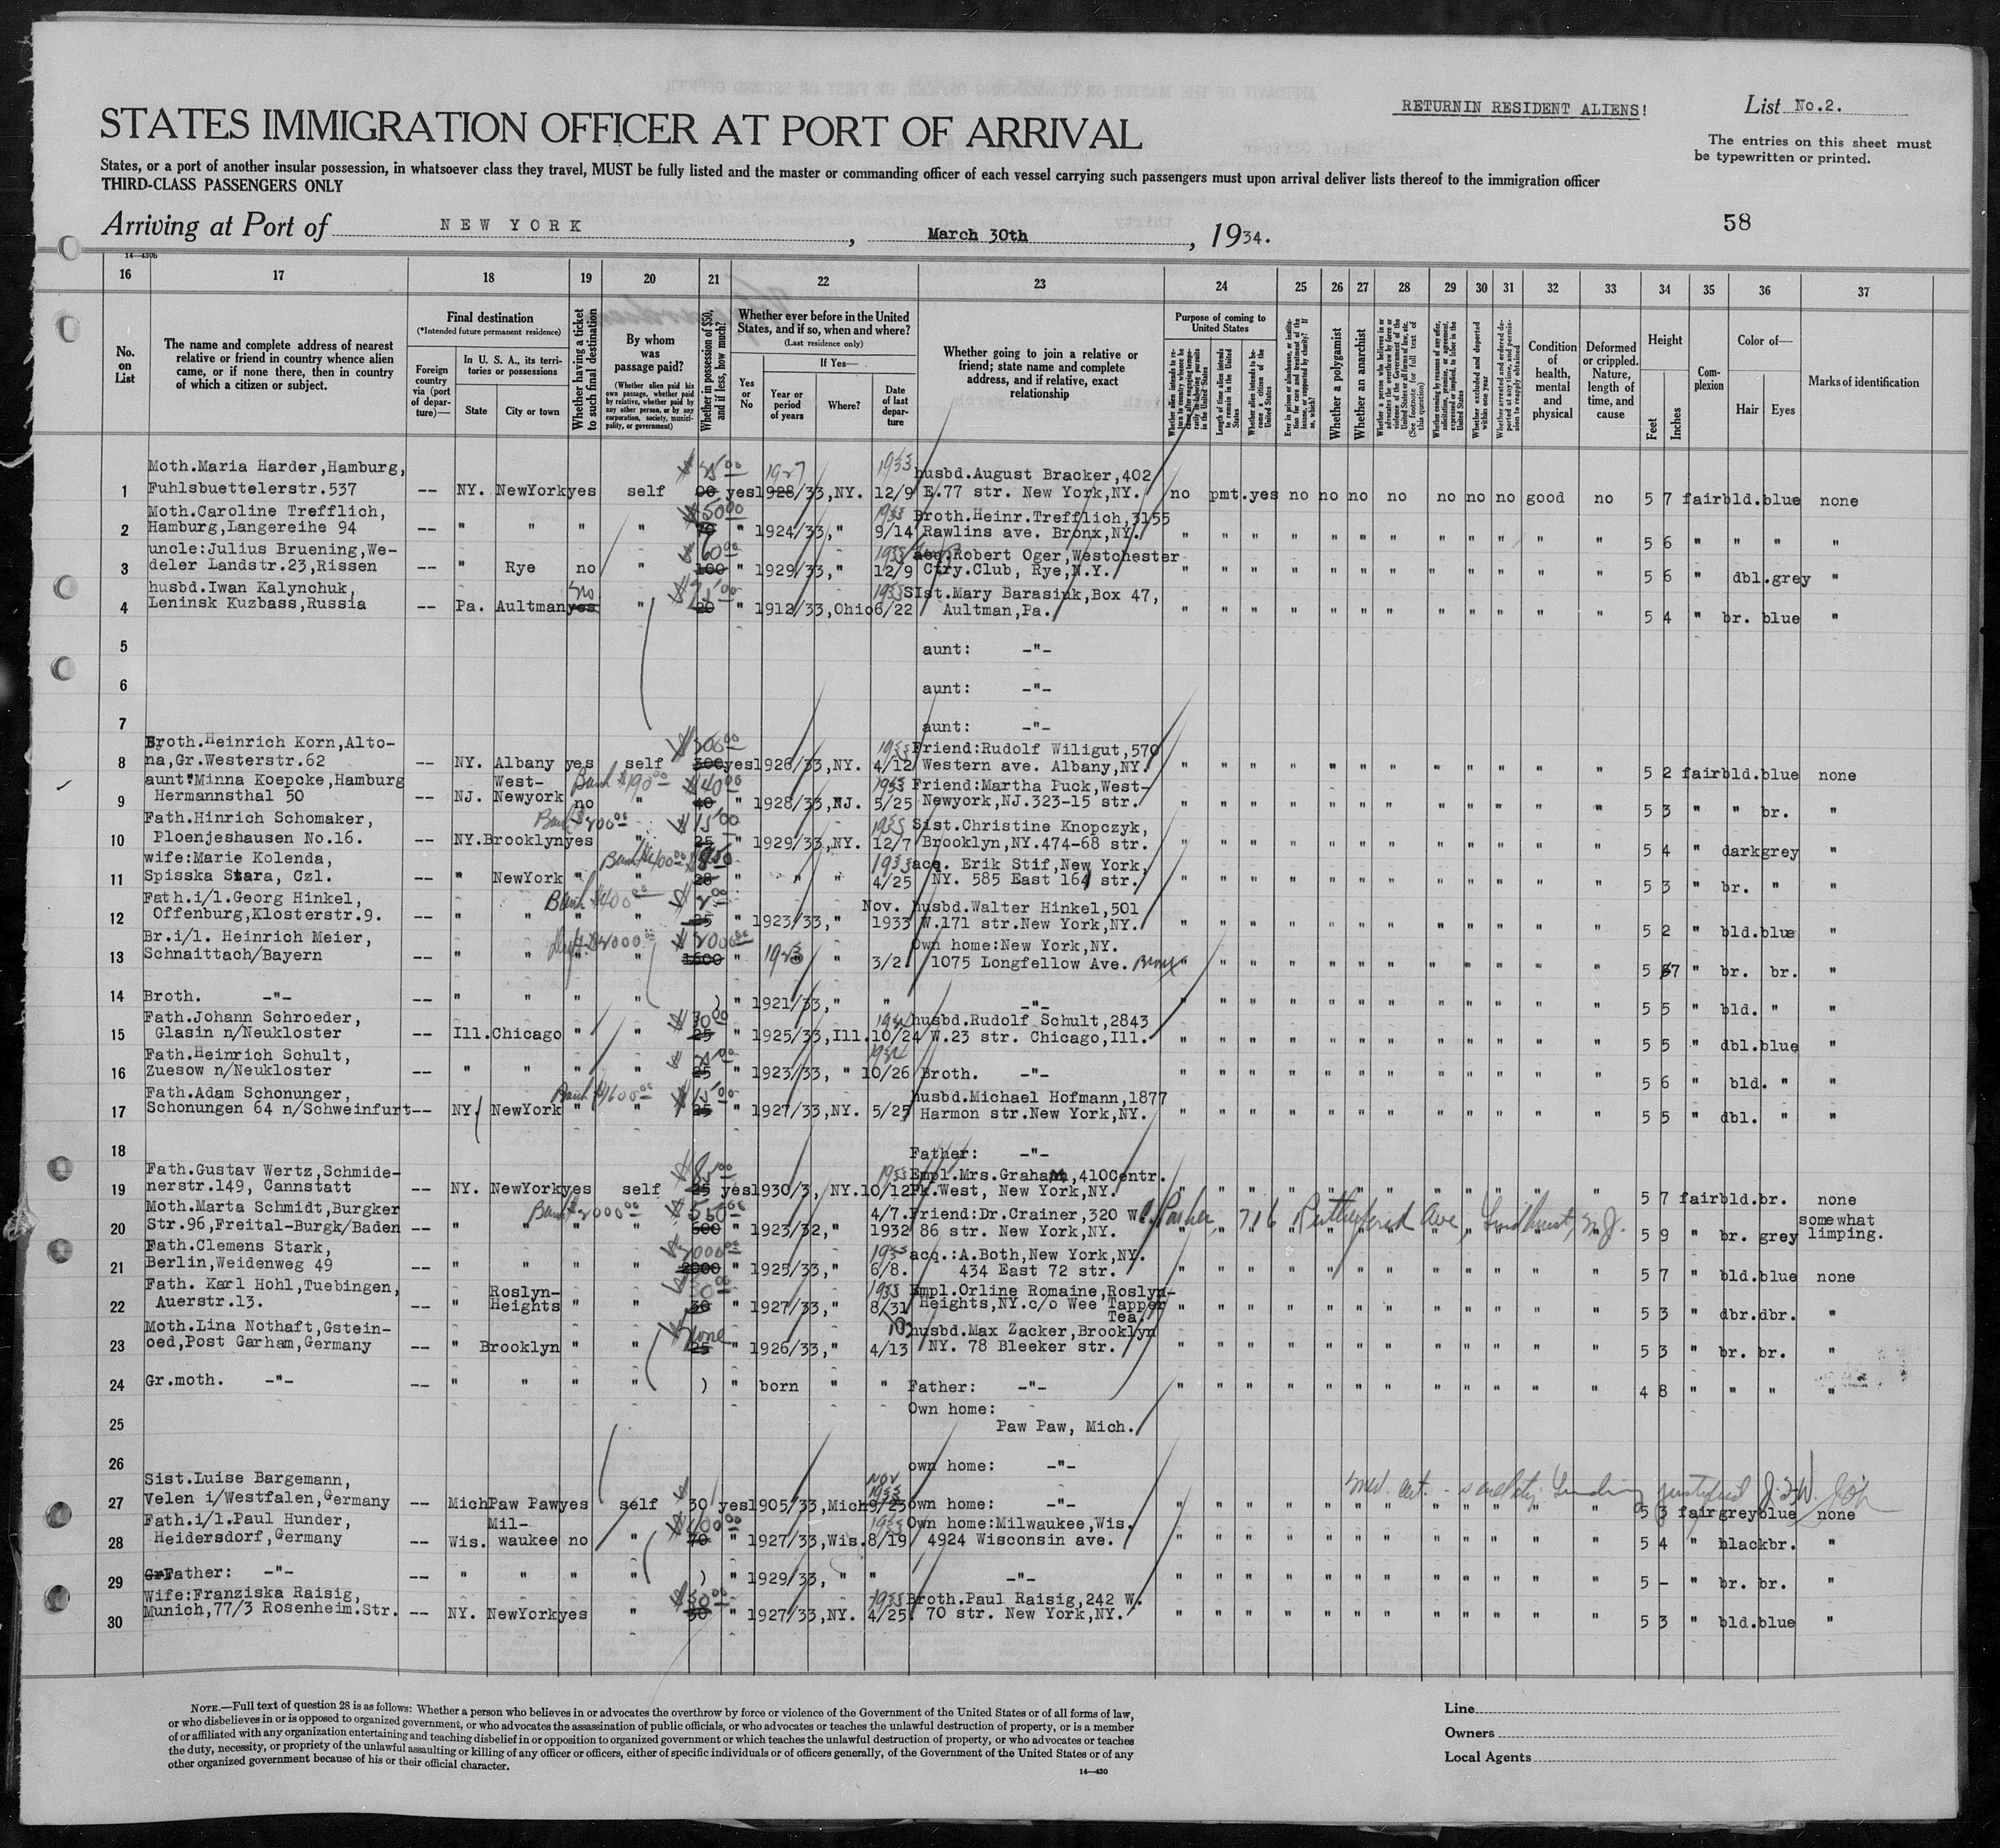 RETURNIN RESIDENT ALIENS!
List No.2.
STATES IMMIGRATION OFFICER AT PORT OF ARRIVAL
The entries on this sheet must
be typewritten or printed.
States, or a port of another insular possession, in whatsoever class they travel, MUST be fully listed and the master or commanding officer of each vessel carrying such passengers must upon arrival deliver lists thereof to the immigration officer
THIRD-CLASS PASSENGERS ONLY
Arriving at Port of NEW YORK, March 30th, 1934.
58
14—430b
16 17 18 19 20 21 22 23 24 25 26 27 28 29 30 31 32 33 34 35 36 37
No. on List
The name and complete address of nearest relative or friend in country whence alien came, or if none there, then in country of which a citizen or subject.
Final destination
(*Intended future permanent residence)
Foreign country via (port of departure)—
In U. S. A., its territories or possessions
State City or town
Whether having a ticket to such final destination
By whom was passage paid?
(Whether alien paid his own passage, whether paid by relative, whether paid by any other person, or by any corporation, society, municipality, or government)
Whether in possession of $50, and if less, how much?
Whether ever before in the United States, and if so, when and where?
(Last residence only)
Yes or No
If Yes—
Year or period of years
Where?
Date of last departure
Whether going to join a relative or friend; state name and complete address, and if relative, exact relationship
Purpose of coming to United States
Length of time alien intends to remain in the United States
Whether alien intends to become citizen of the United States
Whether a polygamist
Whether an anarchist
Condition of health, mental and physical
Deformed or crippled. Nature, length of time, and cause
Height
Feet Inches
Complexion
Color of—
Hair Eyes
Marks of identification
Moth.Maria Harder,Hamburg, 1933 husbd.August Bracker,402
1 Fuhlsbuettelerstr.537 -- NY. NewYork yes self 00 yes 1928/33,NY. 12/9 E.77 str. New York,NY. no pmt. yes no no no no no no no good no 5 7 fair bld. blue none
Moth.Caroline Trefflich, 1933 Broth.Heinr.Trefflich,3155
2 Hamburg,Langereihe 94 -- " " " " 70 " 1924/33," 9/14 Rawlins ave. Bronx,NY. " " " " " " " " " " " " 5 6 " " " "
uncle:Julius Bruening,We- 1933 acq.Robert Oger,Westchester
3 deler Landstr.23,Rissen -- " Rye no " 100 " 1929/33," 12/9 Ctry.Club, Rye,N.Y. " " " " " " " " " " " " 5 6 " dbl. grey "
husbd.Iwan Kalynchuk, no 1933 SIst.Mary Barasiuk,Box 47,
4 Leninsk Kuzbass,Russia -- Pa. Aultman yes " 20 " 1912/33,Ohio 6/22 Aultman,Pa. " " " " " " " " " " " " 5 4 " br. blue "
5 aunt: -"-
6 aunt: -"-
7 aunt: -"-
Broth.Heinrich Korn,Alto- 1933 Friend:Rudolf Wiligut,570
8 na,Gr.Westerstr.62 -- NY. Albany yes self 300 yes 1926/33,NY. 4/12 Western ave. Albany,NY. " " " " " " " " " " " " 5 2 fair bld. blue none
aunt:Minna Koepcke,Hamburg West- Bank $190 $40 1933 Friend:Martha Puck,West-
9 Hermannsthal 50 -- NJ. Newyork no " 40 " 1928/33,NJ. 5/25 Newyork,NJ.323-15 str. " " " " " " " " " " " " 5 3 " " br. "
Fath.Hinrich Schomaker, Bank $200 $15 1933 Sist.Christine Knopczyk,
10 Ploenjeshausen No.16. -- NY. Brooklyn yes " 25 " 1929/33,NY. 12/7 Brooklyn,NY.474-68 str. " " " " " " " " " " " " 5 4 " dark grey "
wife:Marie Kolenda, Bank $400 1933 acq. Erik Stif,New York,
11 Spisska Stara, Czl. -- " NewYork " " 28 " " " 4/25 NY. 585 East 164 str. " " " " " " " " " " " " 5 3 " br. " "
Fath.i/l.Georg Hinkel, Bank $400 Nov. husbd.Walter Hinkel,501
12 Offenburg,Klosterstr.9. -- " " " " 25 " 1923/33," 1933 W.171 str.New York,NY. " " " " " " " " " " " " 5 2 " bld. blue "
Br.i/l. Heinrich Meier, Own home:New York,NY.
13 Schnaittach/Bayern -- " " " " 1600 " 1923 " 3/2 1075 Longfellow Ave. Bronx " " " " " " " " " " " " 5 7 " br. br. "
14 Broth. -"- -- " " " " ) " 1921/33," " -"- " " " " " " " " " " " " 5 5 " bld. " "
Fath.Johann Schroeder, husbd.Rudolf Schult,2843
15 Glasin n/Neukloster -- Ill. Chicago " " 25 " 1925/33,Ill. 10/24 W.23 str. Chicago,Ill. " " " " " " " " " " " " 5 5 " dbl. blue "
Fath.Heinrich Schult,
16 Zuesow n/Neukloster -- " " " " 25 " 1923/33, " 10/26 Broth. -"- " " " " " " " " " " " " 5 6 " bld. " "
Fath.Adam Schonunger, Bank $1600 $15 husbd.Michael Hofmann,1877
17 Schonungen 64 n/Schweinfurt -- NY. NewYork " " 25 " 1927/33,NY. 5/25 Harmon str.New York,NY. " " " " " " " " " " " " 5 5 " dbl. " "
18 Father: -"-
Fath.Gustav Wertz,Schmide- 1933 Empl.Mrs.Graham,410Centr.
19 nerstr.149, Cannstatt -- NY. NewYork yes self 25 yes 1930/3, NY. 10/12 Pk.West, New York,NY. " " " " " " " " " " " " 5 7 fair bld. br. none
Moth.Marta Schmidt,Burgker Bank $2000 $550 4/7. Friend:Dr.Crainer,320 W. 716 Rutherford Ave, Lyndhurst, N.J. somewhat
20 Str.96,Freital-Burgk/Baden -- " " " " 600 " 1923/32," 1932 86 str. New York,NY. " " " " " " " " " " " " 5 9 " br. grey limping.
Fath.Clemens Stark, 1933 acq.:A.Both,New York,NY.
21 Berlin,Weidenweg 49 -- " " " " 2000 " 1925/33," 6/8. 434 East 72 str. " " " " " " " " " " " " 5 7 " bld. blue none
Fath. Karl Hohl,Tuebingen, Roslyn- 1933 Empl.Orline Romaine,Roslyn-
22 Auerstr.13. -- " Heights " " 30 " 1927/33," 8/31 Heights,NY.c/o Wee Tapper " " " " " " " " " " " " 5 3 " dbr. dbr. "
Tea.
Moth.Lina Nothaft,Gstein- None husbd.Max Zacker,Brooklyn
23 oed,Post Garham,Germany -- " Brooklyn " " 25 " 1926/33," 4/13 NY. 78 Bleeker str. " " " " " " " " " " " " 5 3 " br. br. "
24 Gr.moth. -"- -- " " " " ) " born " " Father: -"- " " " " " " " " " " " " 4 8 " " " "
Own home:
25 Paw Paw, Mich.
26 own home: -"-
Sist.Luise Bargemann, Nov 1933
27 Velen i/Westfalen,Germany -- Mich Paw Paw yes self 30 yes 1905/33,Mich 9/23 own home: -"- " " " " " " " " " " " " 5 3 fair grey blue none
Fath.i/l.Paul Hunder, Mil- $400 1933 Own home:Milwaukee,Wis.
28 Heidersdorf,Germany -- Wis. waukee no " 70 " 1927/33,Wis. 8/19 4924 Wisconsin ave. " " " " " " " " " " " " 5 4 " black br. "
29 GrFather: -"- -- " " " " ) " 1929/33, " " -"- " " " " " " " " " " " " 5 - " br. br. "
Wife:Franziska Raisig, $30 1933 Broth.Paul Raisig,242 W.
30 Munich,77/3 Rosenheim.Str. -- NY. NewYork yes " 30 " 1927/33,NY. 4/25 70 str. New York,NY. " " " " " " " " " " " " 5 3 " bld. blue "
NOTE.—Full text of question 28 is as follows: Whether a person who believes in or advocates the overthrow by force or violence of the Government of the United States or of all forms of law,
or who disbelieves in or is opposed to organized government, or who advocates the assassination of public officials, or who advocates or teaches the unlawful destruction of property, or is a member
of or affiliated with any organization entertaining and teaching disbelief in or opposition to organized government or which teaches the unlawful destruction of property, or who advocates or teaches
the duty, necessity, or propriety of the unlawful assaulting or killing of any officer or officers, either of specific individuals or of officers generally, of the Government of the United States or of any
other organized government because of his or their official character.
14—430
Line
Owners
Local Agents